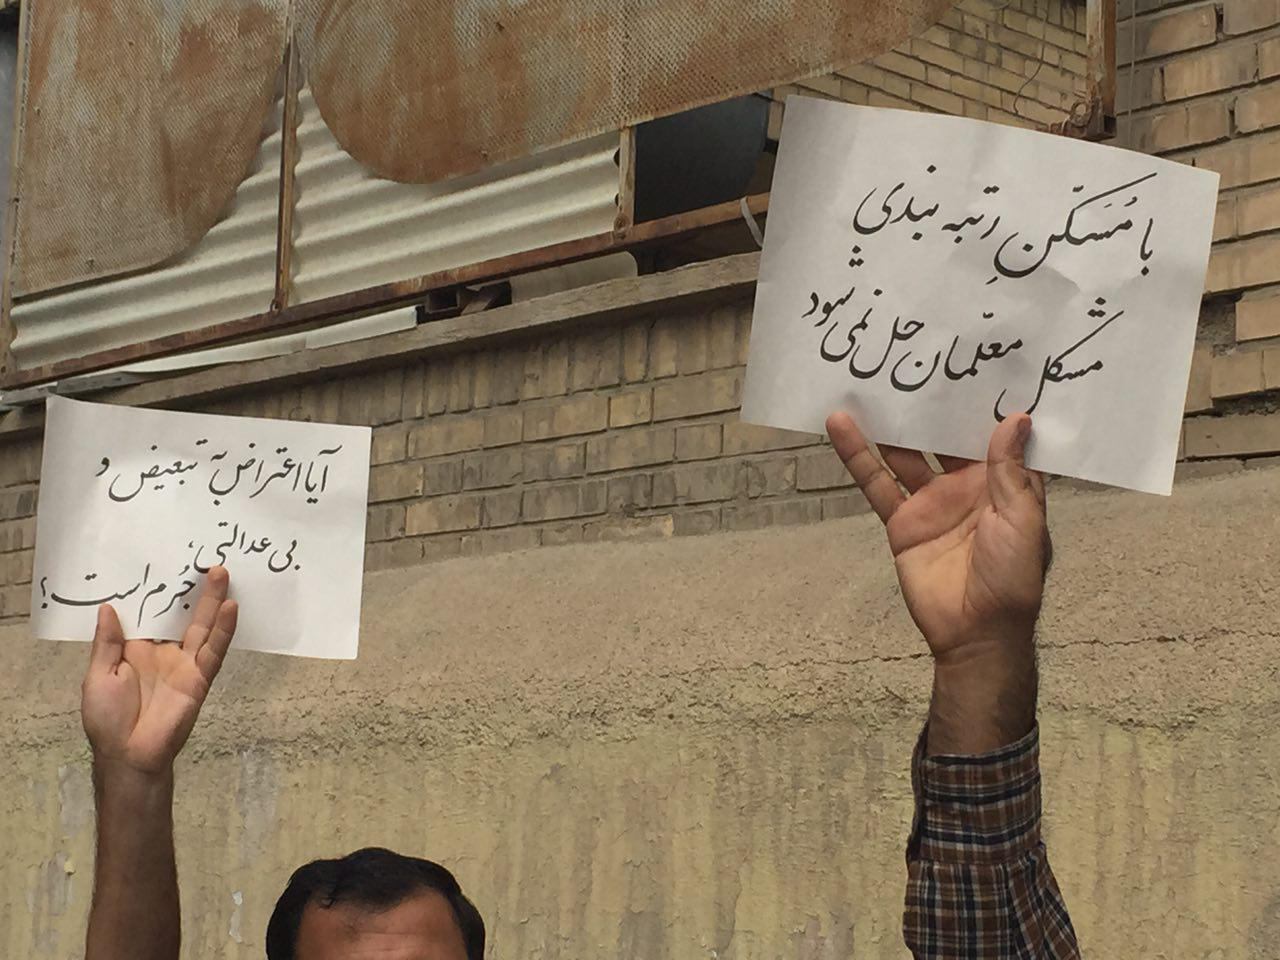 با مُسَکّنِ رتبه بندی
مشکل معّلمان حل نمی شود
آیا اعتراض به تبعیض و
بی عدالتی،
جُرم است؟